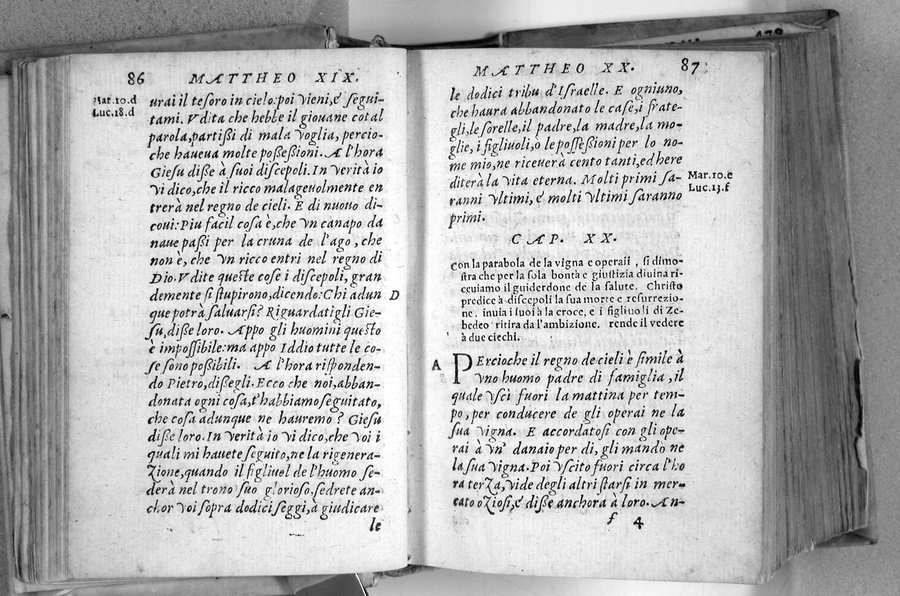 86 MATTHEO XIX.
Mar.10.d
Luc.18.d
urai il tesoro in cielo: poi vieni, e segui-
tami. Vdita che hebbe il giouane cotal
parola, partißi di mala voglia, percio-
che haueua molte poßeßioni. A l'hora
Giesu diße à suoi discepoli. In verità io
vi dico, che il ricco malageuolmente en
trerà nel regno de cieli. E di nuouo di-
coui: Piu facil cosa è, che vn canapo da
naue paßi per la cruna de l'ago, che
non è, che vn ricco entri nel regno di
Dio. Vdite queste cose i discepoli, gran
demente si stupirono, dicendo: Chi adun
D
que potrà saluarsi? Riguardatigli Gie-
su, diße loro. Appo gli huomini questo
è impoßibile: ma appo Iddio tutte le co-
se sono poßibili. A l'hora risponden-
do Pietro, dißegli. Ecco che noi, abban-
donata ogni cosa, t'habbiamo seguitato,
che cosa adunque ne hauremo? Giesu
diße loro. In verità io vi dico, che voi i
quali mi hauete seguito, ne la rigenera-
zione, quando il figliuol de l'huomo se-
derà nel trono suo glorioso, sedrete an-
chor voi sopra dodici seggi, à giudicare
le
MATTHEO XX. 87
le dodici tribu d'Israelle. E ogniuno,
che haura abbandonato le case, i frate-
gli, le sorelle, il padre, la madre, la mo-
glie, i figliuoli, ò le posseßioni per lo no-
me mio, ne riceuerà cento tanti, ed here
diterà la vita eterna. Molti primi sa-
ranni vltimi, e molti vltimi saranno
primi.
Mar.10.e
Luc.13.f
CAP. XX.
Con la parabola de la vigna e operaii, si dimo-
stra che per la sola bontà e giustizia diuina ri-
ceuiamo il guiderdone de la salute. Christo
predice à discepoli la sua morte e resurrezio-
ne. inuia i suoi à la croce, e i figliuoli di Ze-
bedeo ritira da l'ambizione. rende il vedere
à due ciechi.
A
PErcioche il regno de cieli è simile à
vno huomo padre di famiglia, il
quale vscì fuori la mattina per tem-
po, per conducere de gli operai ne la
sua vigna. E accordatosi con gli ope-
rai à vn' danaio per di, gli mandò ne
la sua vigna. Poi vscito fuori circa l'ho
ra terza, vide degli altri starsi in mer-
cato oziosi, e diße anchora à loro. An-
f 4